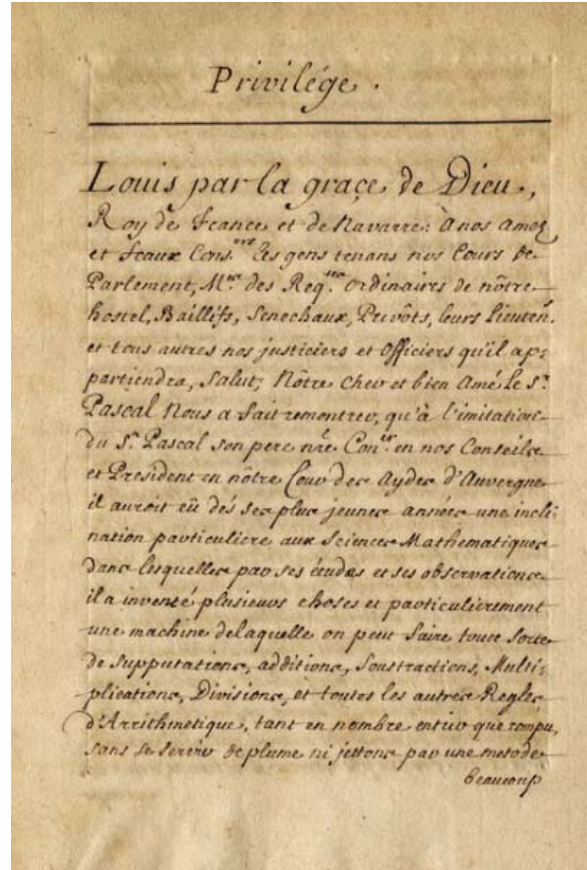 Privilége.
Louis par la graçe de Dieu,
Roy de France et de Navarre: À nos amez
et feaux Cons.ers les gens tenans nos Cours de
Parlement, M.res des Req.tes ordinaires de nôtre
hostel, Baillifs, Senechaux, Prevôts, leurs Lieuten.s
et tous autres nos justiciers et Officiers qu'il ap=
partiendra, Salut; Nôtre cher et bien Amé Le S.r
Pascal Nous a fait remontrer, qu'à l'imitation
du S.r Pascal son pere nre Con.er en nos Conseils
et President en nôtre Cour des Aydes d'Auvergne
il auroit eû dés ses plus jeunes années une incli=
nation particuliere aux Sciences Mathematiques
dans lesquelles par ses études et ses observations
il a inventé plusieurs choses et particulierement
une machine delaquelle on peut faire toute sorte
de Supputations, additions, Soustractions, Multi=
plications, Divisions, et toutes les autres Regles
d'Arrithmetique, tant en nombre entier que rompu,
sans se servir de plume ni jettons par une metode
beaucoup